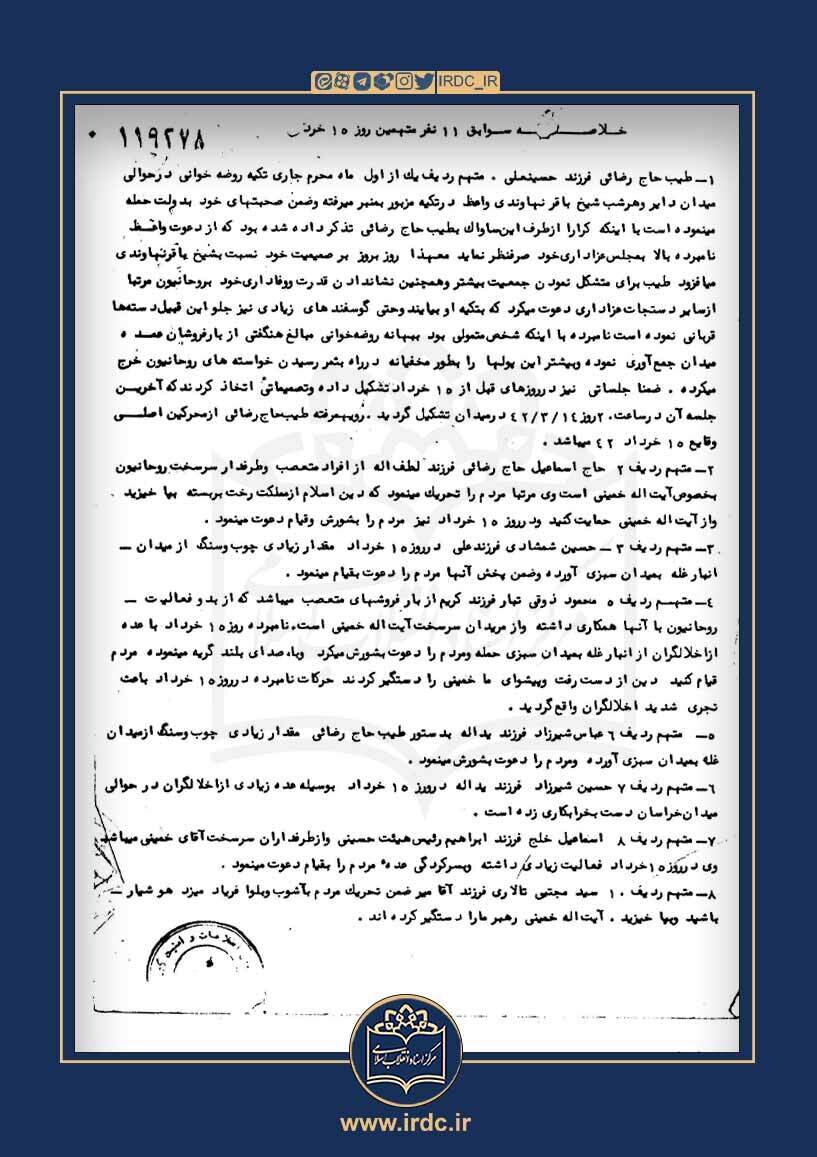 IRDC_IR
خلاصه سوابق ۱۱ نفر متهمین روز ۱۵ خرداد
۱۱۹۲۷۸
۱ـ طیب حاج رضائی فرزند حسینعلی . متهم ردیف یك از اول ماه محرم جاری تکیه روضه خوانی در حوالی
میدان دایر و هر شب شیخ باقر نهاوندی واعظ در تکیه مزبور بمنبر میرفته وضمن صحبتهای خود بدولت حمله
مینموده است با اینکه کرارا از طرف این ساواك بطیب حاج رضائی تذکر داده شده بود که از دعوت واعظ
نامبرده بالا بمجلس عزاداری خود صرفنظر نماید معهذا روز بروز بر صمیمیت خود نسبت بشیخ باقر نهاوندی
میافزود طیب برای متشکل نمودن جمعیت بیشتر وهمچنین نشاندادن قدرت ووفاداری خود بروحانیون مرتبا
از سایر دستجات عزاداری دعوت میکرد که بتکیه او بیایند وحتی گوسفند های زیادی نیز جلو این قبیل دسته‌ها
قربانی نموده است نامبرده با اینکه شخص متمولی بود ببهانه روضه‌خوانی مبالغ هنگفتی از بارفروشان عمده
میدان جمع‌آوری نموده وبیشتر این پولها را بطور مخفیانه در راه بثمر رسیدن خواسته های روحانیون خرج
میکرده . ضمنا جلساتی نیز در روزهای قبل از ۱۵ خرداد تشکیل داده وتصمیماتی اتخاذ کردند که آخرین
جلسه آن در ساعت ۲۰ روز ۴۲/۳/۱۴ در میدان تشکیل گردید . رویهمرفته طیب حاج رضائی از محرکین اصلی
وقایع ۱۵ خرداد ۴۲ میباشد .
۲ـ متهم ردیف ۲ حاج اسماعیل حاج رضائی فرزند لطف اله از افراد متعصب وطرفدار سرسخت روحانیون
بخصوص آیت اله خمینی است وی مرتبا مردم را تحریك مینمود که دین اسلام از مملکت رخت بربسته بپا خیزید
واز آیت اله خمینی حمایت کنید ودر روز ۱۵ خرداد نیز مردم را بشورش وقیام دعوت مینمود .
۳ـ متهم ردیف ۳ ـ حسین شمشادی فرزند علی در روز ۱۵ خرداد مقدار زیادی چوب وسنگ از میدان ـ
انبار غله بمیدان سبزی آورده وضمن پخش آنها مردم را دعوت بقیام مینمود .
۴ـ متهم ردیف ۵ محمود ذوقی تبار فرزند کریم از بار فروشهای متعصب میباشد که از بدو فعالیت ـ
روحانیون با آنها همکاری داشته واز مریدان سرسخت آیت اله خمینی است، نامبرده روز ۱۵ خرداد با عده
از اخلالگران از انبار غله بمیدان سبزی حمله ومردم را دعوت بشورش میکرد وبا صدای بلند گریه مینموده مردم
قیام کنید دین از دست رفت وپیشوای ما خمینی را دستگیر کردند حرکات نامبرده در روز ۱۵ خرداد باعث
تجری شدید اخلالگران واقع گردید .
۵ـ متهم ردیف ۶ عباس شیرزاد فرزند یداله بدستور طیب حاج رضائی مقدار زیادی چوب وسنگ از میدان
غله بمیدان سبزی آورده ومردم را دعوت بشورش مینمود .
۶ـ متهم ردیف ۷ حسین شیرزاد فرزند یداله در روز ۱۵ خرداد بوسیله عده زیادی از اخلالگران در حوالی
میدان خراسان دست بخرابکاری زده است .
۷ـ متهم ردیف ۸ اسماعیل خلج فرزند ابراهیم رئیس هیئت حسینی واز طرفداران سرسخت آقای خمینی میباشد
وی در روز ۱۵ خرداد فعالیت زیادی داشته وبسرکردگی عده مردم را بقیام دعوت مینمود .
۸ـ متهم ردیف ۱۰ سید مجتبی تالاری فرزند آقا میر ضمن تحریك مردم بآشوب وبلوا فریاد میزد هوشیار ـ
باشید وبپا خیزید . آیت اله خمینی رهبر مارا دستگیر کرده اند .
اطلاعات و امنیت
مرکز اسناد انقلاب اسلامی
www.irdc.ir